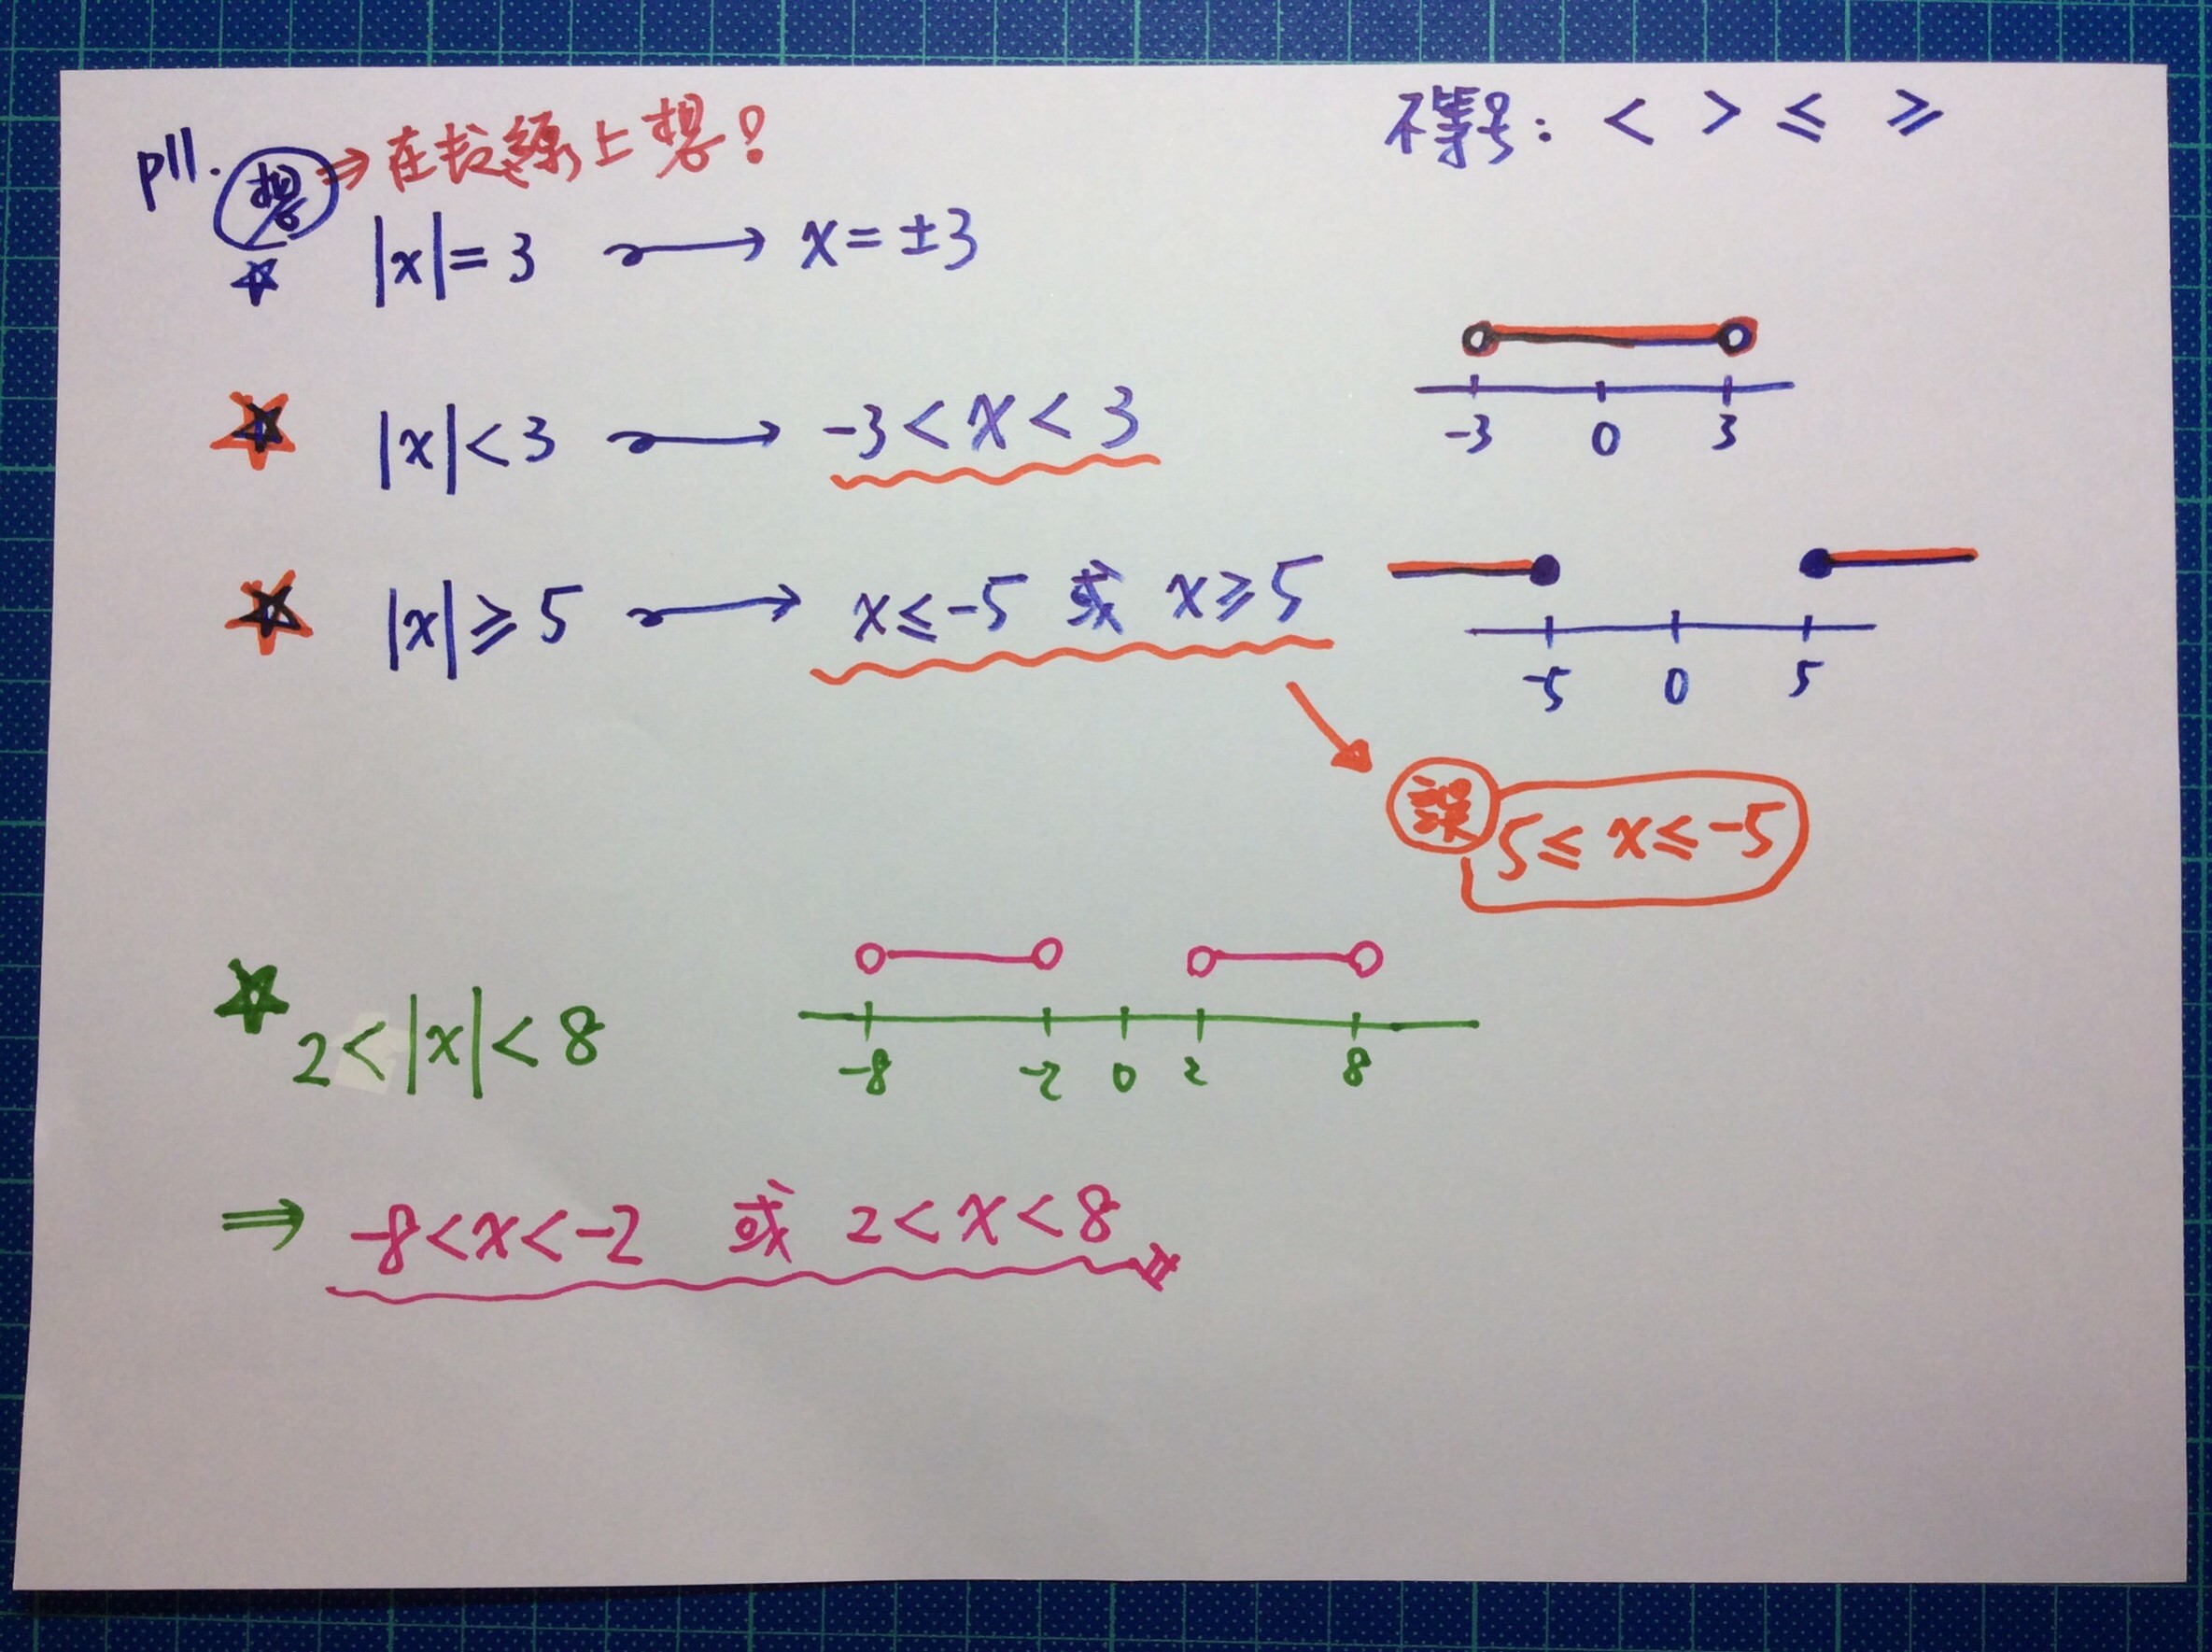 p11. 想 ⇒ 在拉線上想?
不等号: < > ≤ ≥
|x|=3 → x=±3
|x|<3 → -3<x<3
-3 0 3
|x|≥5 → x≤-5 或 x≥5
-5 0 5
誤 5≤x≤-5
2<|x|<8
-8 -2 0 2 8
⇒ -8<x<-2 或 2<x<8